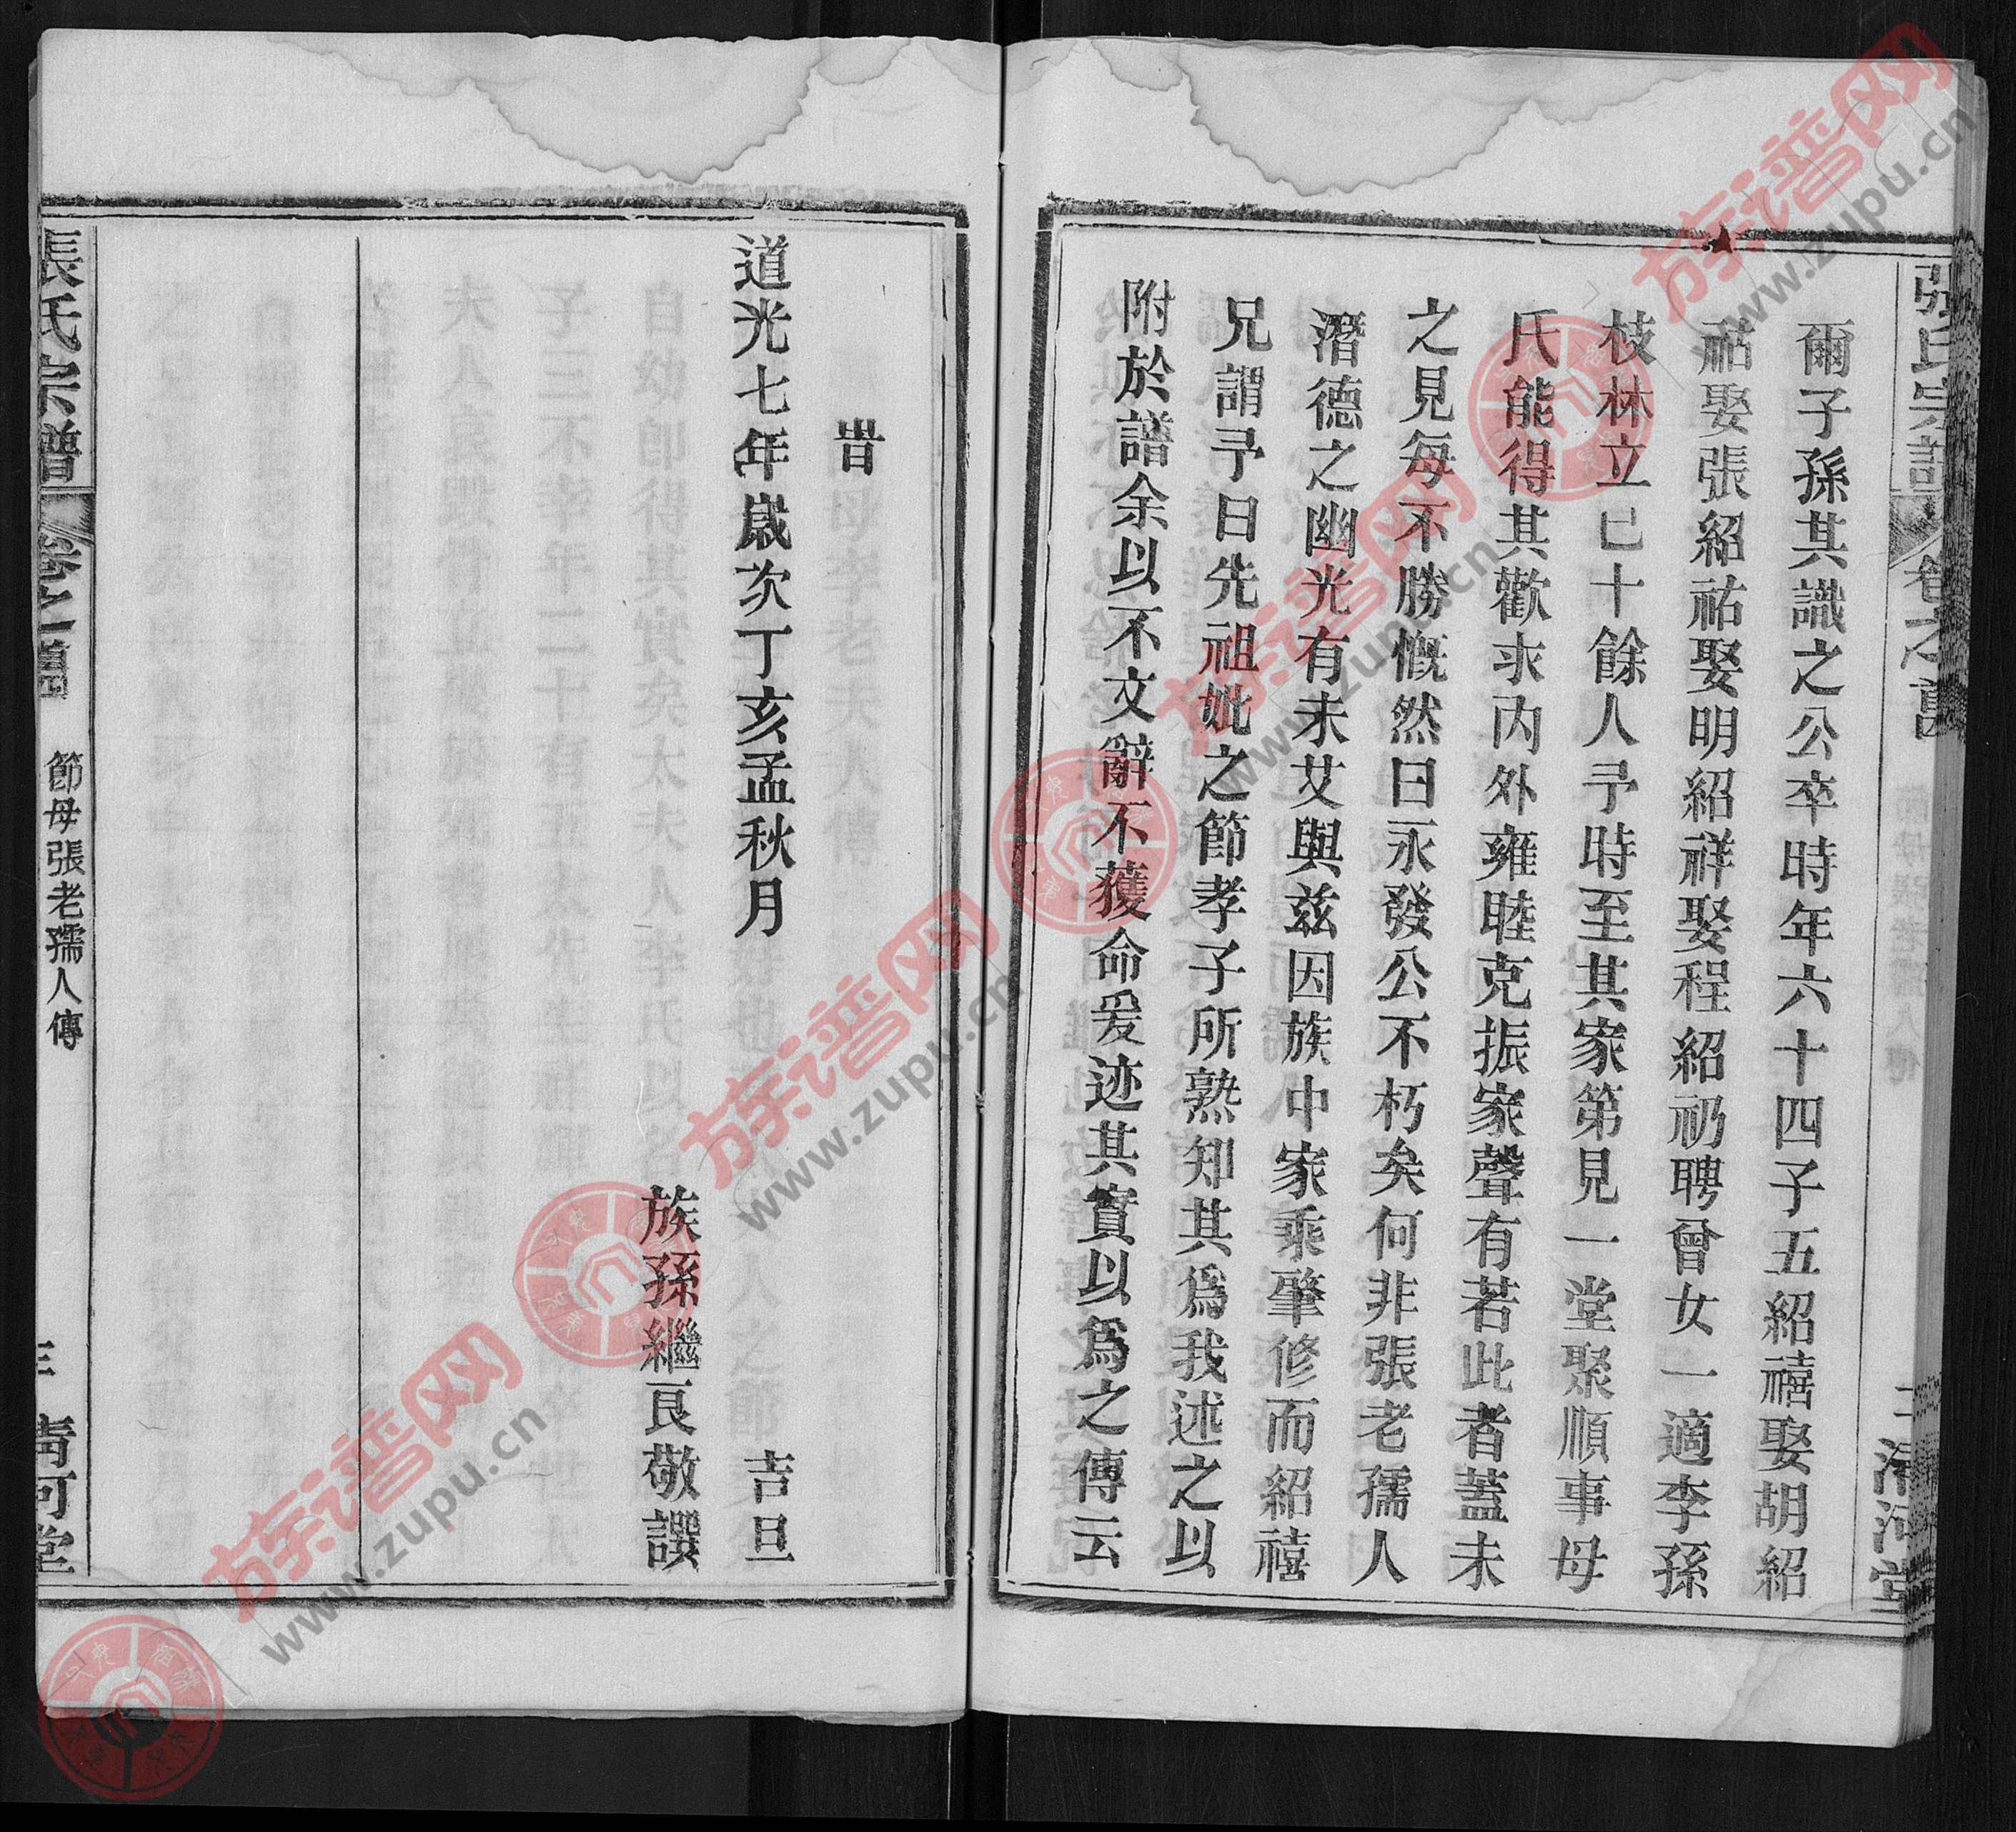 張氏宗譜 卷之首 二 清河堂
爾子孫其識之公卒時年六十四子五紹禧娶胡紹
祜娶張紹祐娶明紹祥娶程紹礽聘曾女一適李孫
枝林立已十餘人予時至其家第見一堂聚順事母
氏能得其歡求內外雍睦克振家聲有若此者蓋未
之見每不勝慨然曰永發公不朽矣何非張老孺人
潛德之幽光有未艾與兹因族中家乘肇修而紹禧
兄謂予曰先祖妣之節孝子所熟知其爲我述之以
附於譜余以不文辭不獲命爰迹其實以爲之傳云
旹
道光七年歲次丁亥孟秋月 吉旦
族孫繼良敬譔
張氏宗譜 卷之首 節母張老孺人傳 三 清河堂
族谱网
www.zupu.cn
族谱网
www.zupu.cn
族谱网
www.zupu.cn
族谱网
www.zupu.cn